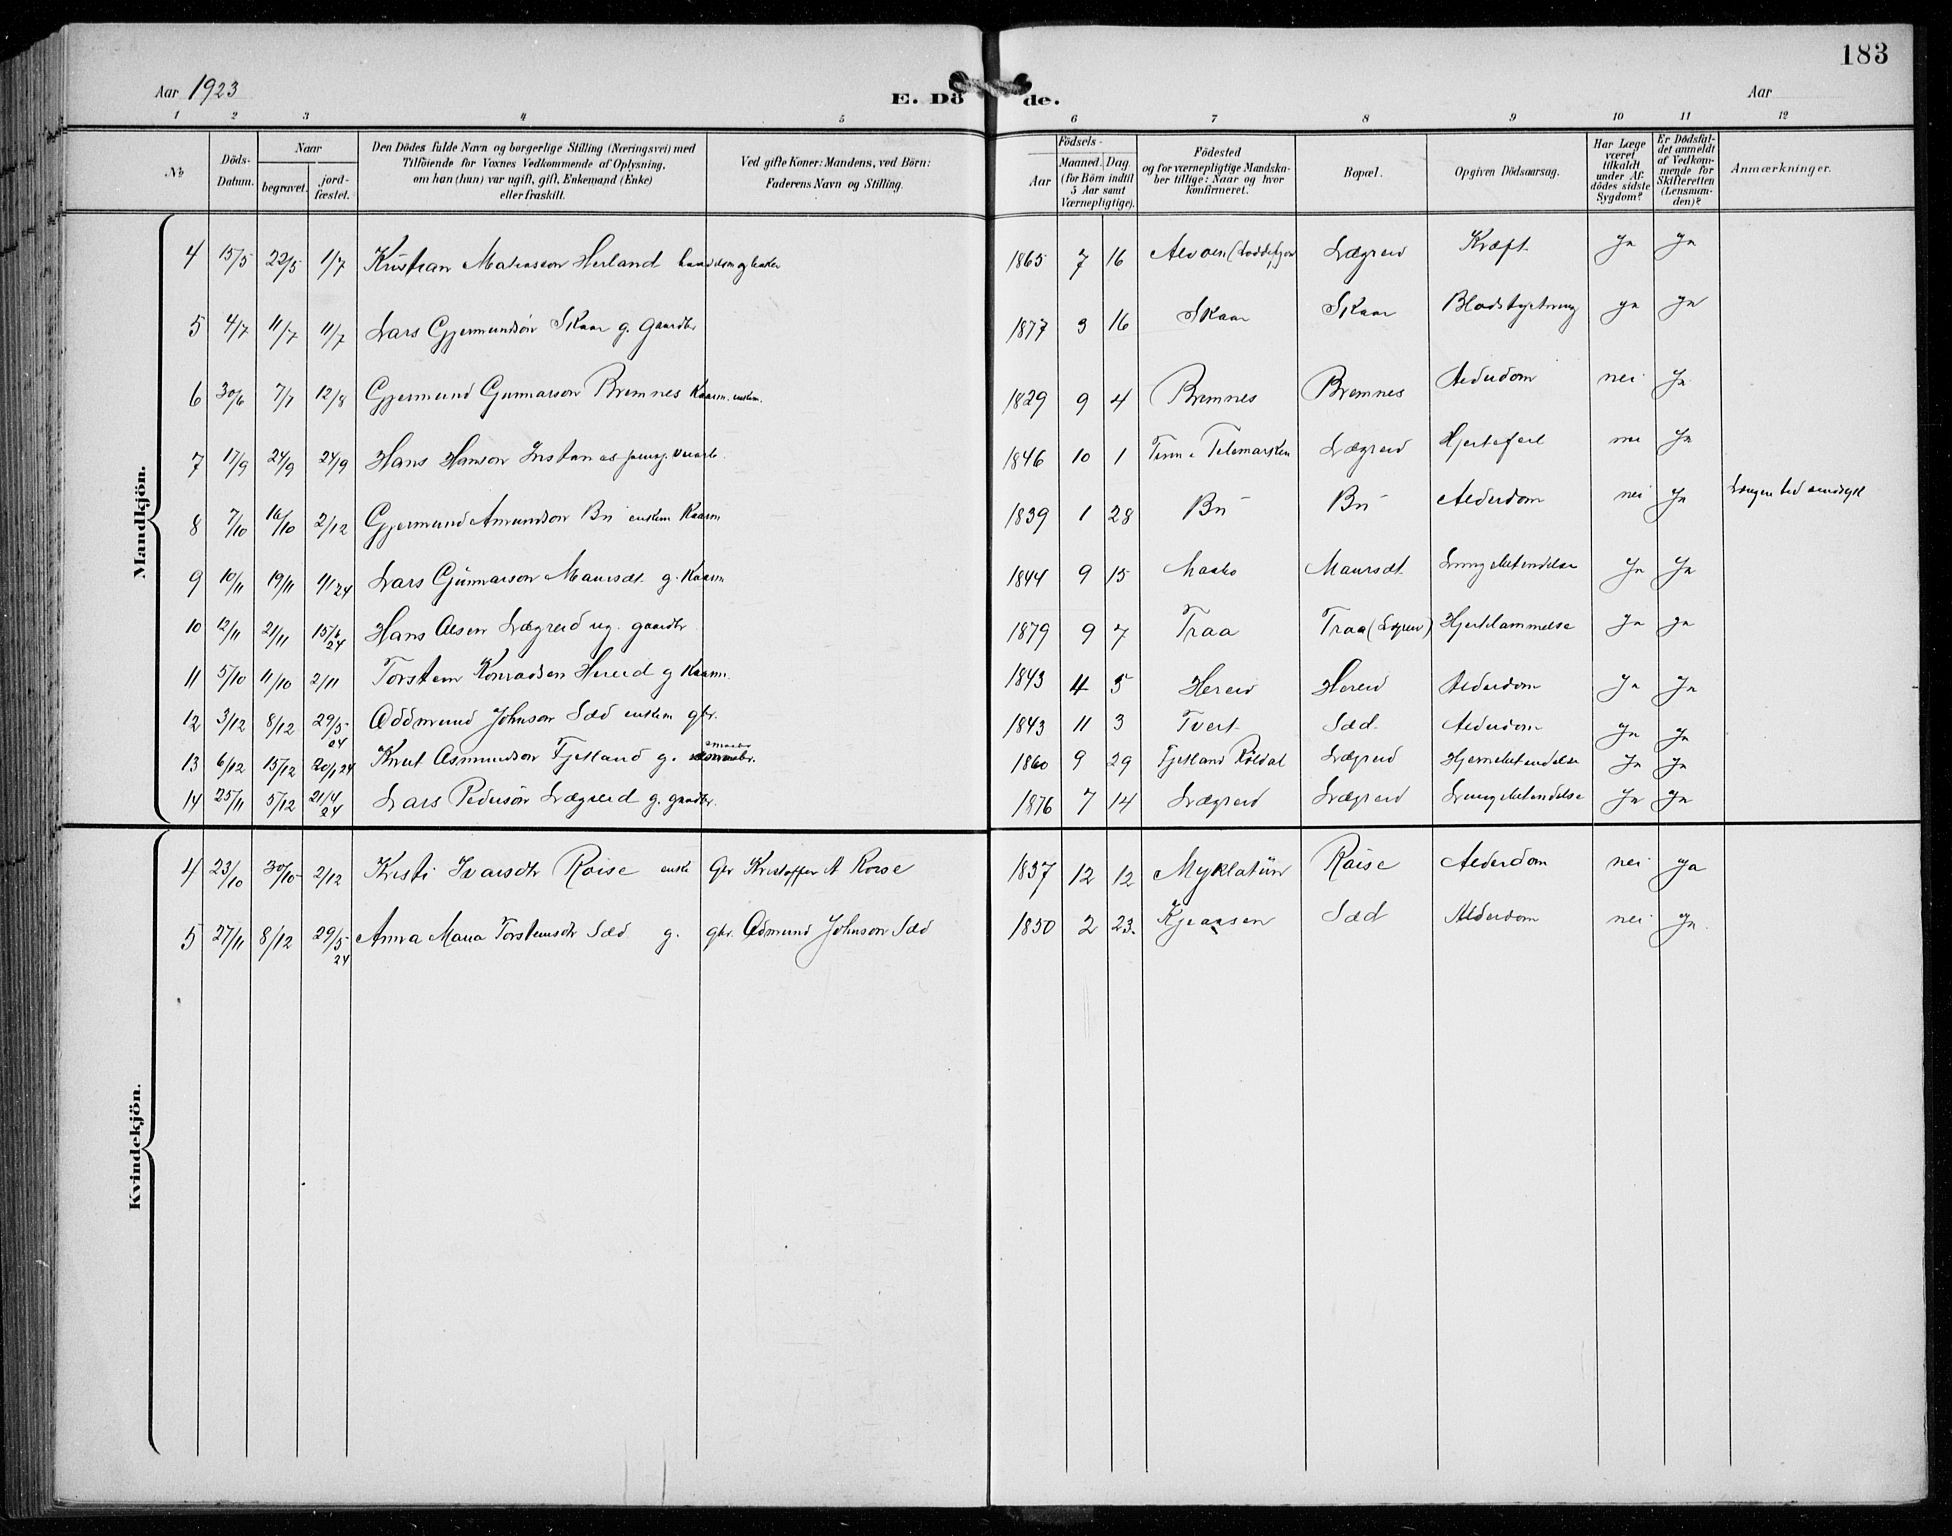 183
Aar 1923
E. Dö de.
Aar
1 2 3 4 5 6 7 8 9 10 11 12
No
Döds-Datum.
Naar
begravet.
jord-fæstet.
Den Dödes fulde Navn og borgerlige Stilling (Næringsvei) med
Tilföiende for Voxnes Vedkommende af Oplysning,
om han (hun) var ugift, gift, Enkemand (Enke)
eller fraskilt.
Ved gifte Koner: Mandens, ved Börn:
Faderens Navn og Stilling.
Födsels-
Aar
Maaned. Dag.
(for Börn indtil
5 Aar samt
Værnepligtige).
Födested
og for værnepligtige Mandska-
ber tillige: Naar og hvor
konfirmeret.
Bopæl.
Opgiven Dödsaarsag.
Har Læge
været
tilkaldt
under Af-
dödes sidste
Sygdom?
Er Dödsfal-
det anmeldt
af Vedkom-
mende for
Skifteretten
(Lensman-
den)?
Anmærkninger.
Mandkjön.
4 15/5 22/5 1/7 Kristian Herland 1865 7 16 Lægreid Kræft Ja Ja
5 4/7 11/7 11/7 Lars Gjermundsön Skaar g. gaardbr 1877 3 16 Skaar Skaar Blodstyrtning ja ja
6 30/6 7/7 12/8 Gjermund Gunnarson Bremnes Kaarm. enkem. 1829 9 4 Bremnes Bremnes Alderdom nei Ja
7 17/9 24/9 24/9 Hans Hanson 1846 10 1 Telemarken Lægreid Hjertefeil nei Ja
8 7/10 16/10 2/12 Gjermund Amundson Bu enkem Kaarm 1839 1 28 Bu Bu Alderdom nei Ja
9 10/11 19/11 1/1 24 Lars Gunnarson Maursæt g. Kaarm 1844 9 15 Maabø Maursæt Lungebetendelse Ja Ja
10 12/11 21/11 15/6 24 Hans Olsen Lægreid ug. gaardbr 1879 9 7 Traa Traa (Lægreid) Hjertelammelse Ja ja
11 5/10 11/10 2/11 Torstein Konradsen Hereid g Kaarm. 1843 4 5 Hereid Hereid Alderdom Ja Ja
12 3/12 8/12 29/5 24 Oddmund Johnson Sæd enkem gbr. 1843 11 3 Tveit Sæd Alderdom Ja Ja
13 6/12 15/12 20/1 24 Knut Asmundson Fjetland g. 1860 9 29 Fjetland Röldal Lægreid Hjernebetendelse Ja Ja
14 25/11 5/12 21/4 24 Lars Pedersön Lægreid g. gaardbr. 1876 7 14 Lægreid Lægreid Lungebetendelse Ja Ja
Kvindekjön.
4 23/10 30/10 2/12 Kristi Ivarsdtr Röise enke Gbr Kristoffer A Röise 1837 12 12 Myklatun Röise Alderdom nei ja
5 27/11 8/12 29/5 24 Anna Maria Torsteinsdtr Sæd g. gbr. Odmund Johnson Sæd 1850 2 23. Kjeaasen Sæd Alderdom nei Ja